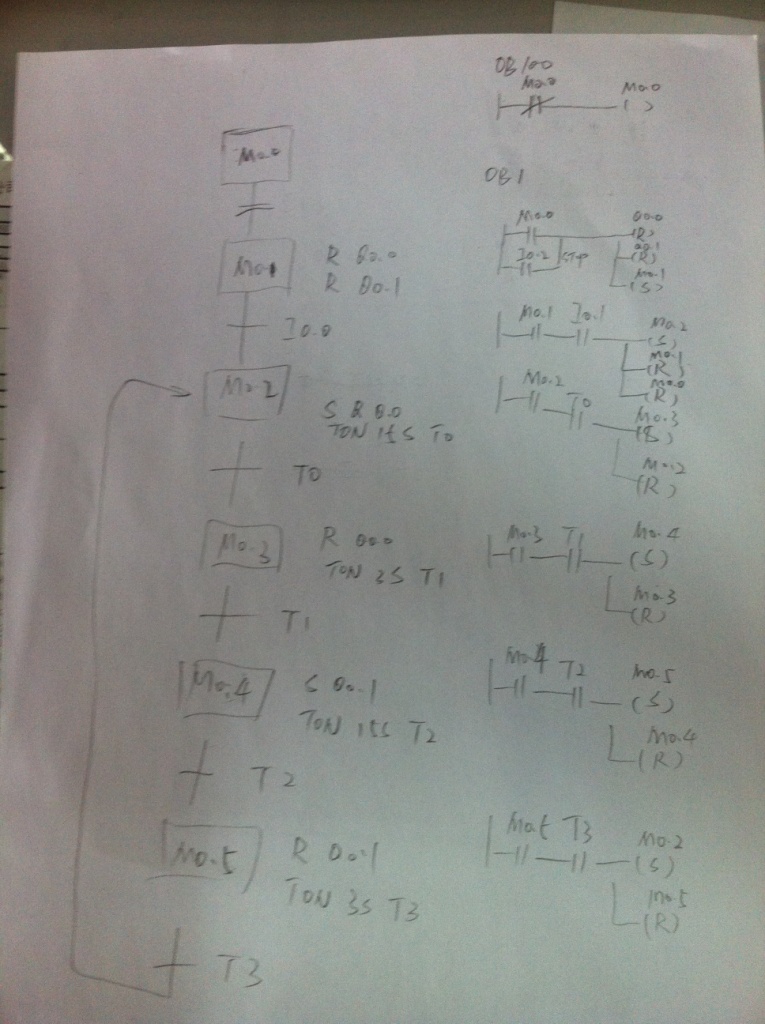 M0.0
M0.1
R Q0.0
R Q0.1
I0.0
M0.2
S Q0.0
TON 15S T0
T0
M0.3
R Q0.0
TON 3S T1
T1
M0.4
S Q0.1
TON 15S T2
T2
M0.5
R Q0.1
TON 3S T3
T3
OB100
M0.0 M0.0
( )
OB1
M0.0 Q0.0
(R)
I0.2 STOP Q0.1
(R)
M0.1
(S)
M0.1 I0.1 M0.2
(S)
M0.1
(R)
M0.0
(R)
M0.2 T0 M0.3
(S)
M0.2
(R)
M0.3 T1 M0.4
(S)
M0.3
(R)
M0.4 T2 M0.5
(S)
M0.4
(R)
M0.5 T3 M0.2
(S)
M0.5
(R)